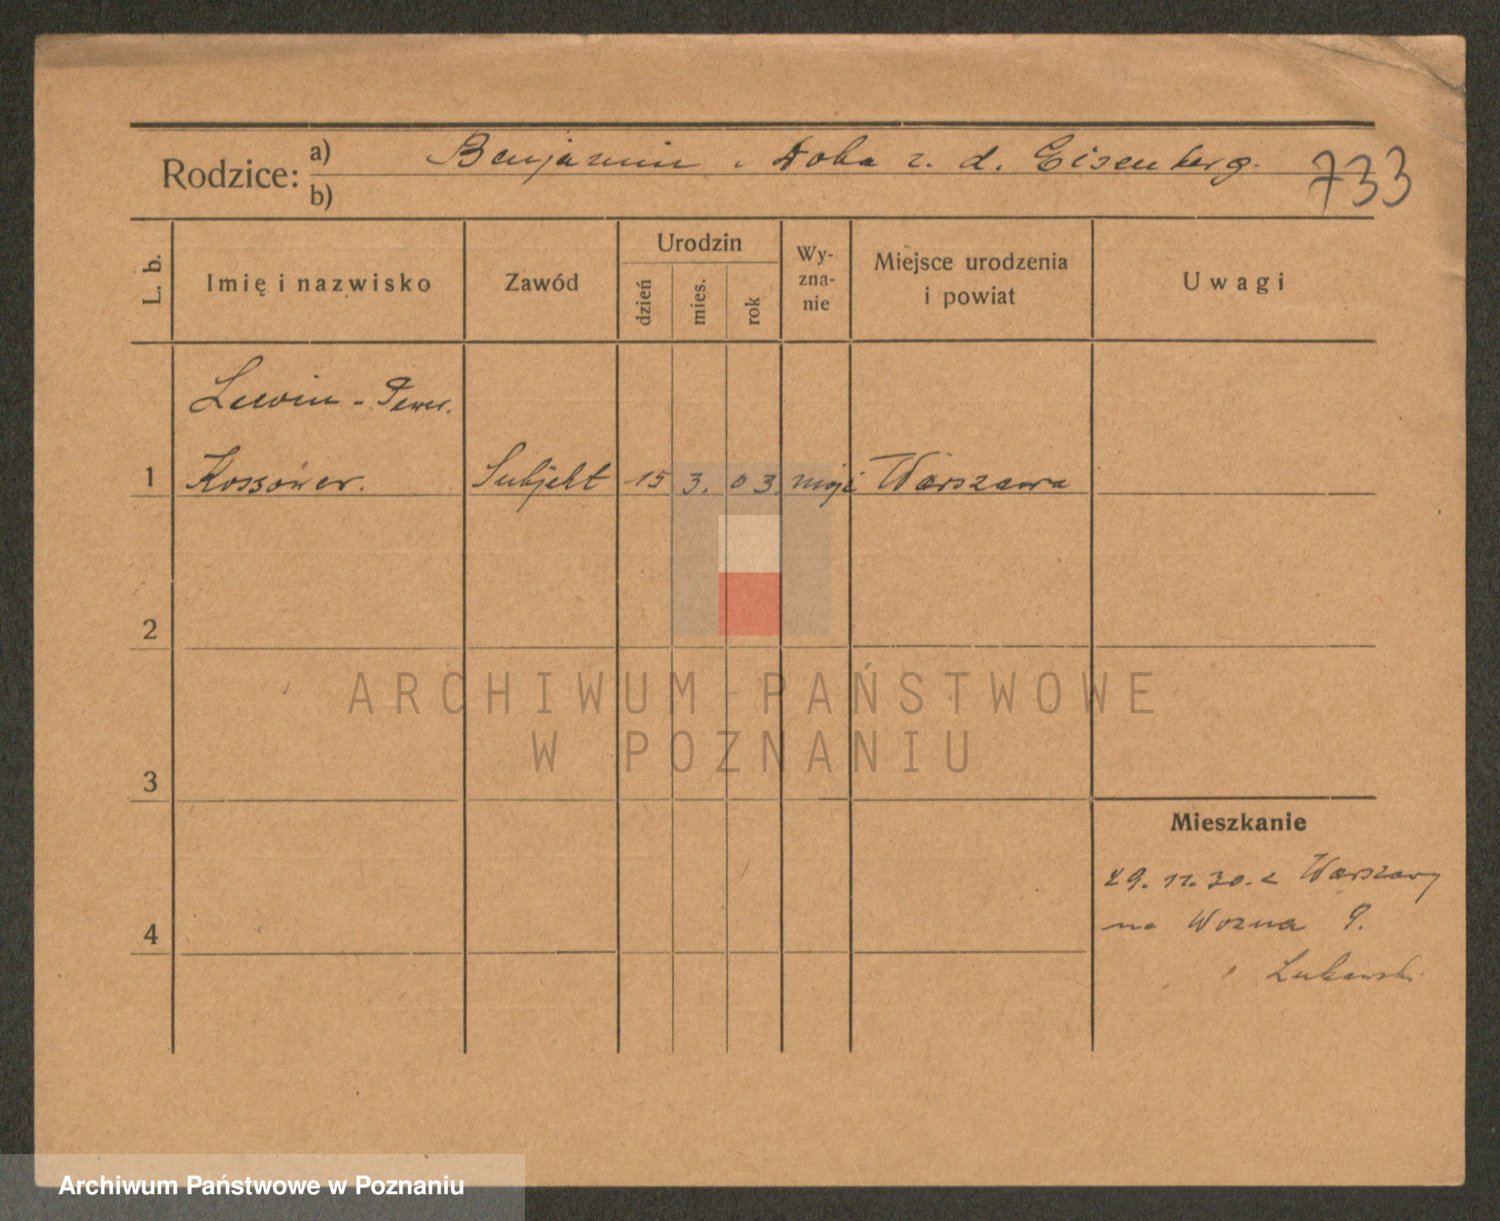 Rodzice: a) Benjamin i Doba z. d. Eisenberg. 733
b)
L. b.
Imię i nazwisko
Zawód
Urodzin
dzień
mies.
rok
Wy-
zna-
nie
Miejsce urodzenia
i powiat
Uwagi
Lewin -
1 Kossower. Subjekt 15 3. 03 mojż Warszawa
2
ARCHIWUM PAŃSTWOWE
W POZNANIU
3
Mieszkanie
29. 11. 30. z Warszawy
na Wozna 9.
4
Archiwum Państwowe w Poznaniu